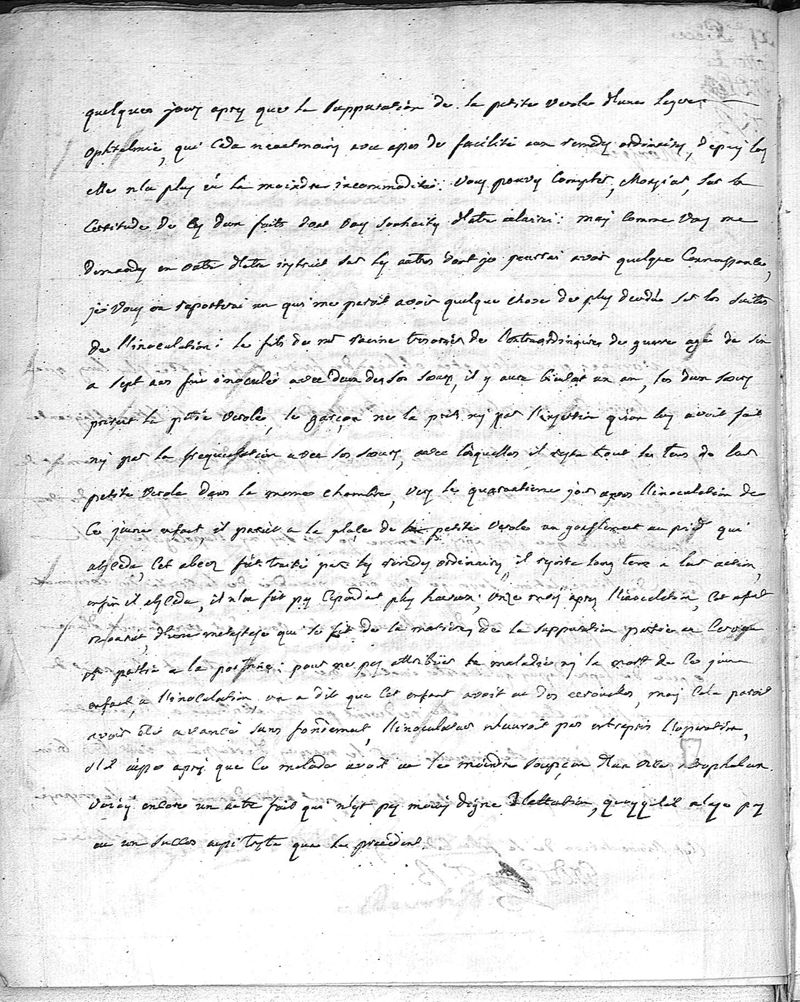 quelques jours apres que la suppuration de la petite verole d'une legere
ophtelmie, qui ceda neantmoins avec assez de facilité aux remedes ordinaires, depuis lors
elle n'a plus eu la moindre incommodité. vous pouvez compter, Monsieur, sur la
certitude de ces deux faits dont vous souhaitez d'etre eclairci: mais comme vous me
demandez en outre d'etre instruit sur les autres dont je pourrai avoir quelque connoissance,
je vous en raporterai un qui me paroit avoir quelque chose de plus decidé sur les suites
de l'inoculation: le fils de mr racine tresorier de l'extraordinaire de guerre agé de six
a sept ans fut inoculé avec deux de ses soeurs, il y aura bientot un an, les deux soeurs
prirent la petite verole, le garçon ne la prit ny par l'insertion qu'on luy avoit fait
ny par la frequentation avec ses soeurs, avec lesquelles il resta tout le tems de leur
petite verole dans la meme chambre, vers le quarantieme jour apres l'inoculation de
ce jeune enfant, il parut a la place de petite verole un gonflement au pied qui
abceda, cet abcez fut traité par les remedes ordinaires, il resista long tems a leur action,
enfin il abceda, il n'en fut pas cependant plus heureux; onze mois apres l'inoculation, cet enfant
mourut, d'une metastase qui se fit de la matiere de la suppuration partie au cerveau
et partie a la poitrine: pour ne pas attribuer la maladie ny la mort de ce jeune
enfant, a l'inoculation on a dit que cet enfant avoit eu des ecrouelles, mais cela paroit
avoir été avancé sans fondement, l'inoculateur n'auroit pas entrepris l'operation,
s'il eusse apris que le malade avoit eu le moindre soupçon d'un vice scrophuleux.
Voicy encore un autre fait qui n'est pas moins digne d'attention, quoyqu'il n'aye pas
eu un succes aussi triste que le precedent.